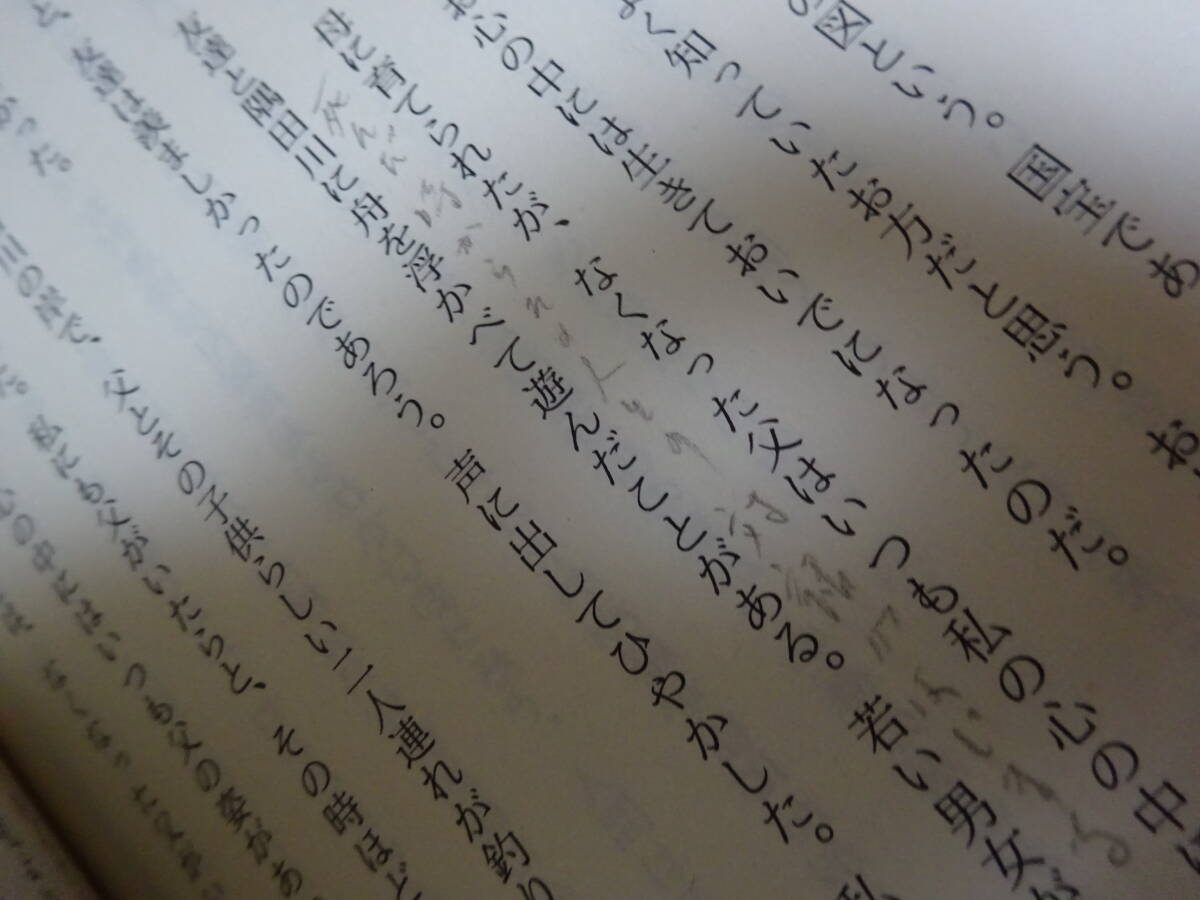 図という。国宝であ
く知っていたお方だと思う。お
心の中には生きておいでになったのだ。
母に育てられたが、なくなった父はいつも私の心の中に
死んだ時から人との対話はじまる
友達と隅田川に舟を浮かべて遊んだことがある。若い男女が
友達は羨ましかったのであろう。声に出してひやかした。私
かった。
の岸で、父とその子供らしい二人連れが釣り
。私にも父がいたらと、その時ほど
心の中にはいつも父の姿があ
なくなった父